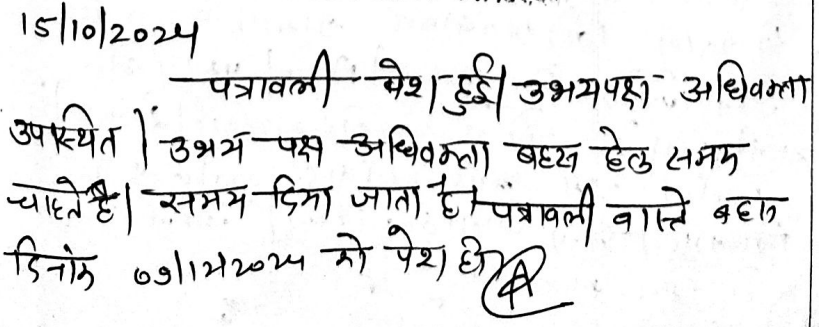 15/10/2024
पत्रावली पेश हुई। उभयपक्ष अधिवक्ता
उपस्थित। उभय पक्ष अधिवक्ता बहस हेतु समय
चाहते है। समय दिया जाता है। पत्रावली वास्ते बहस
दिनांक 09/12/2024 को पेश हो।